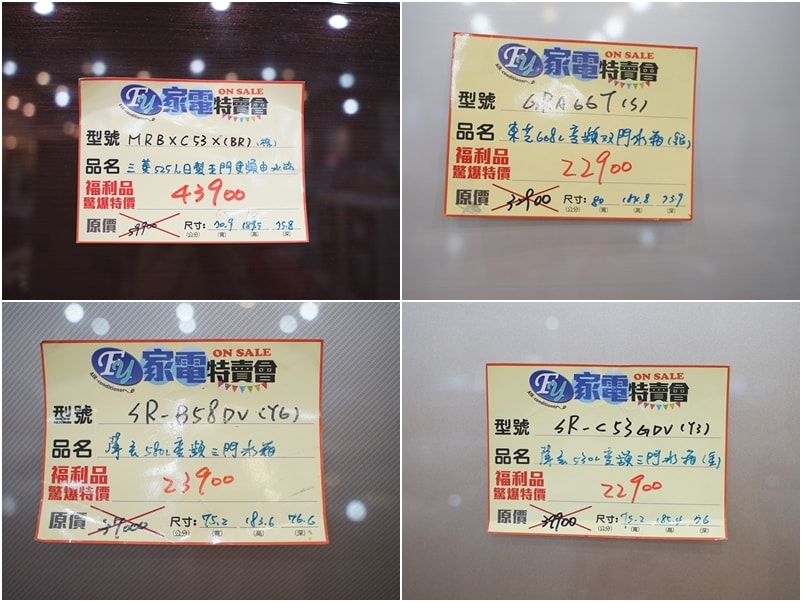 FU 家電特賣會 ON SALE
Air conditioner
型號 MRBXC53X(BR)(棕)
品名 三菱525L日製五門變頻電冰箱
福利品
驚爆特價 43900
原價 59900 尺寸: 70.9 183.5 75.8
(公分) (寬) (高) (深)
FU 家電特賣會 ON SALE
Air conditioner
型號 GRA66T(S)
品名 東芝608L變頻双門冰箱(銀)
福利品
驚爆特價 22900
原價 尺寸: 80 184.8 75.7
(公分) (寬) (高) (深)
FU 家電特賣會 ON SALE
Air conditioner
型號 SR-B58DV(Y6)
品名 聲宝580L變頻三門冰箱
福利品
驚爆特價 23900
原價 37000 尺寸: 75.2 183.6 76.6
(公分) (寬) (高) (深)
FU 家電特賣會 ON SALE
Air conditioner
型號 SR-C53GDV(Y3)
品名 聲宝530L變頻三門冰箱(金)
福利品
驚爆特價 22900
原價 39900 尺寸: 75.2 185.4 76
(公分) (寬) (高) (深)